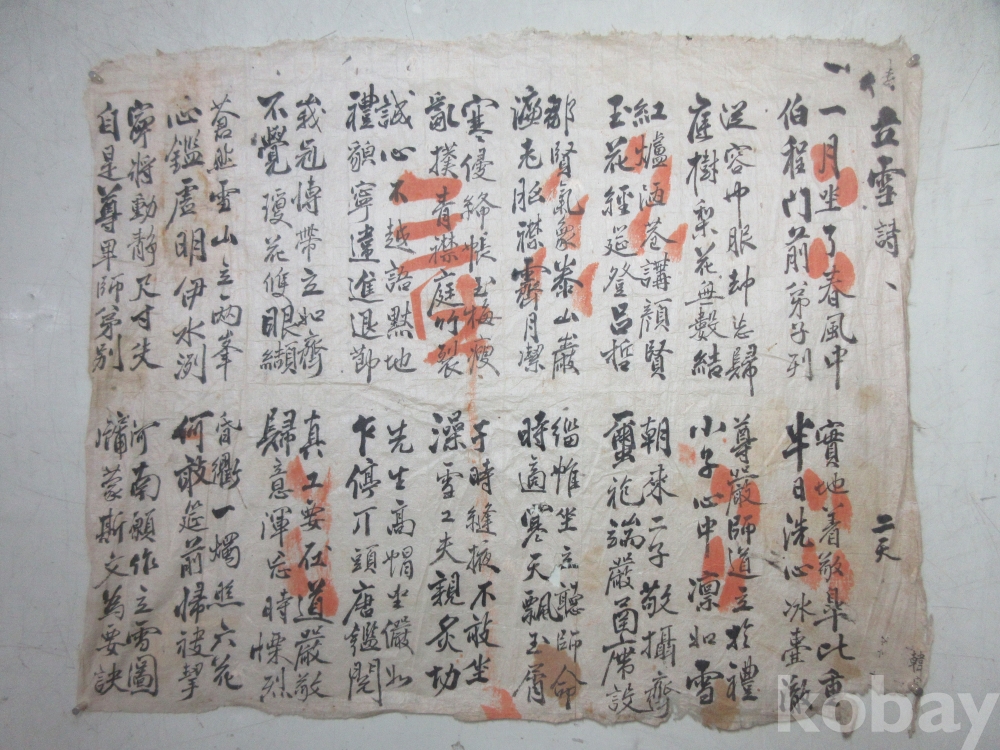 立雪詩
二天
一月坐了春風中
伯程門前弟子列
從容巾服却忘歸
庭樹梨花無數結
紅爐酒巷講顏賢
玉花經筵登呂哲
鄒賢氣象泰山巖
濂老胸襟霽月潔
寒優絳帳玉梅瘦
亂撲青襟庭竹裂
誠心不越語默地
禮貌寧違進退節
峩冠博帶立如齊
不覺瓊花雙眼纈
蒼然雪山立兩峯
心鑑虛明伊水洌
寧將動靜尺寸失
自是尊卑師弟別
實地着敬臯比重
半日洗心冰壺澈
尊嚴師道立於禮
小子心中凜如雪
朝來二子敬攝齊
爾端嚴凾席設
緇帷坐忘聽師命
時適寒天飄玉屑
子時縫掖不敢坐
澡雪工夫親炙切
先生高帽坐儼如
乍停丁頭唐鑑閱
真工要在道嚴敬
歸意渾忘時慄烈
昏衢一燭照六花
何敢筵前帰袂挈
河南願作立雪圖
牖蒙斯文為要訣
kobay